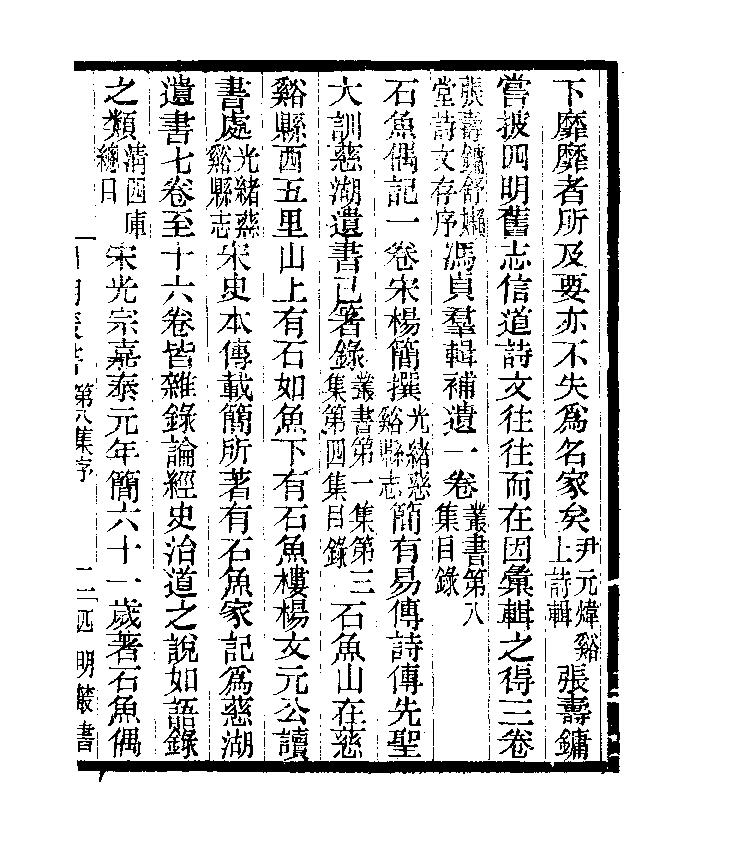 下靡靡者所及要亦不失爲名家矣尹元煒谿上詩輯張壽鏞
嘗披四明舊志信道詩文往往而在因彙輯之得三卷
張壽鏞舒嬾堂詩文存序馮貞羣輯補遺一卷叢書第八集目錄
石魚偶記一卷宋楊簡撰光緒慈谿縣志簡有易傳詩傳先聖
大訓慈湖遺書已箸錄叢書第一集第三集第四集目錄石魚山在慈
谿縣西五里山上有石如魚下有石魚樓楊文元公讀
書處光緒慈谿縣志宋史本傳載簡所著有石魚家記爲慈湖
遺書七卷至十六卷皆雜錄論經史治道之說如語錄
之類清四庫總目宋光宗嘉泰元年簡六十一歲著石魚偶
四明叢書 第八集序 二 四明叢書